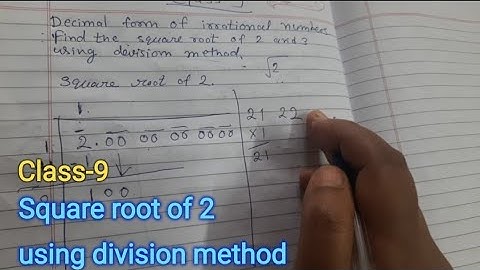 Decimal form of irrational numbers
Find the square root of 2 and 3
using division method.
√2
Square root of 2.
1.
2.00 00 00 00 00
1
100
21 22
×1
21
Class-9
Square root of 2
using division method